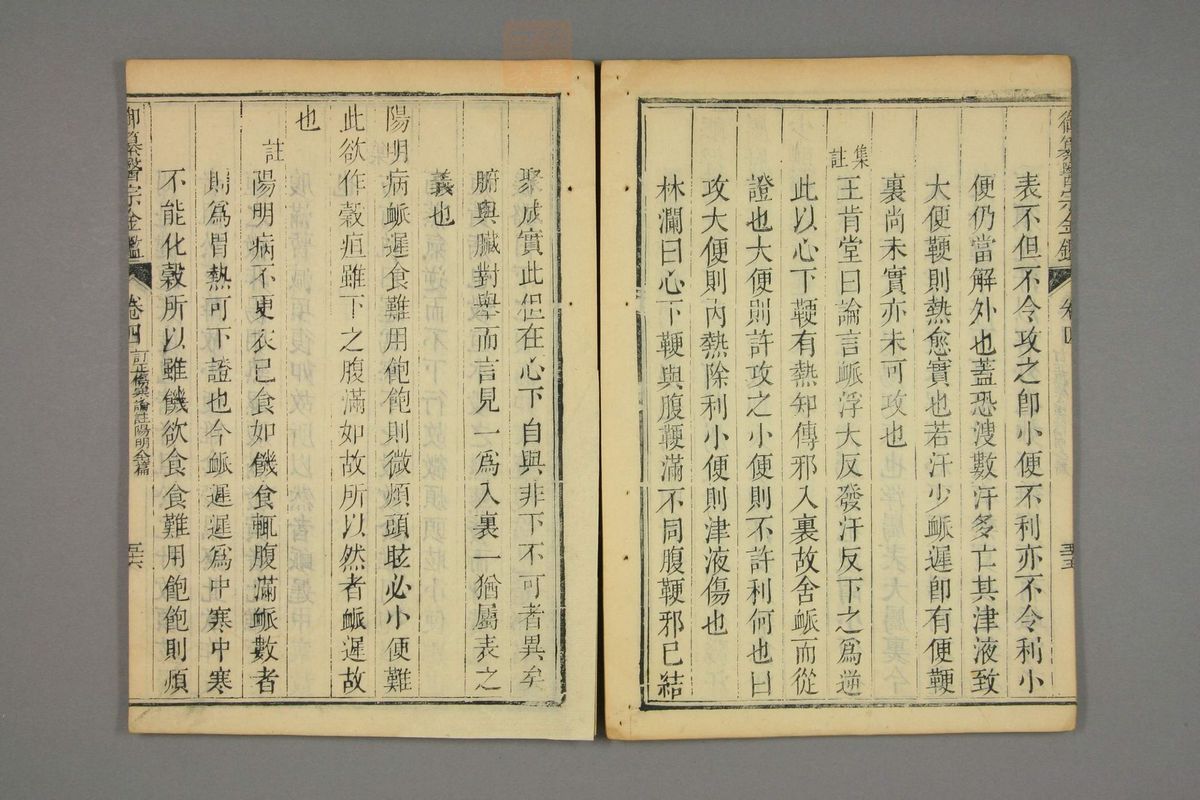 御纂醫宗金鑑 卷四 五十五
表不但不令攻之卽小便不利亦不令利小
便仍當解外也蓋恐溲數汗多亡其津液致
大便鞕則熱愈實也若汗少脈遲卽有便鞕
裏尚未實亦未可攻也
集註王肯堂曰論言脈浮大反發汗反下之爲逆
此以心下鞕有熱知傳邪入裏故舍脈而從
證也大便則許攻之小便則不許利何也曰
攻大便則內熱除利小便則津液傷也
林瀾曰心下鞕與腹鞕滿不同腹鞕邪已結
聚成實此但在心下自與非下不可者異矣
腑與臟對舉而言見一爲入裏一猶屬表之
義也
陽明病脈遲食難用飽飽則微煩頭眩必小便難
此欲作穀疸雖下之腹滿如故所以然者脈遲故
也
註陽明病不更衣已食如饑食輒腹滿脈數者
則爲胃熱可下證也今脈遲遲爲中寒中寒
不能化穀所以雖饑欲食食難用飽飽則煩
御纂醫宗金鑑 卷四 訂正傷寒論註陽明全篇 五十六